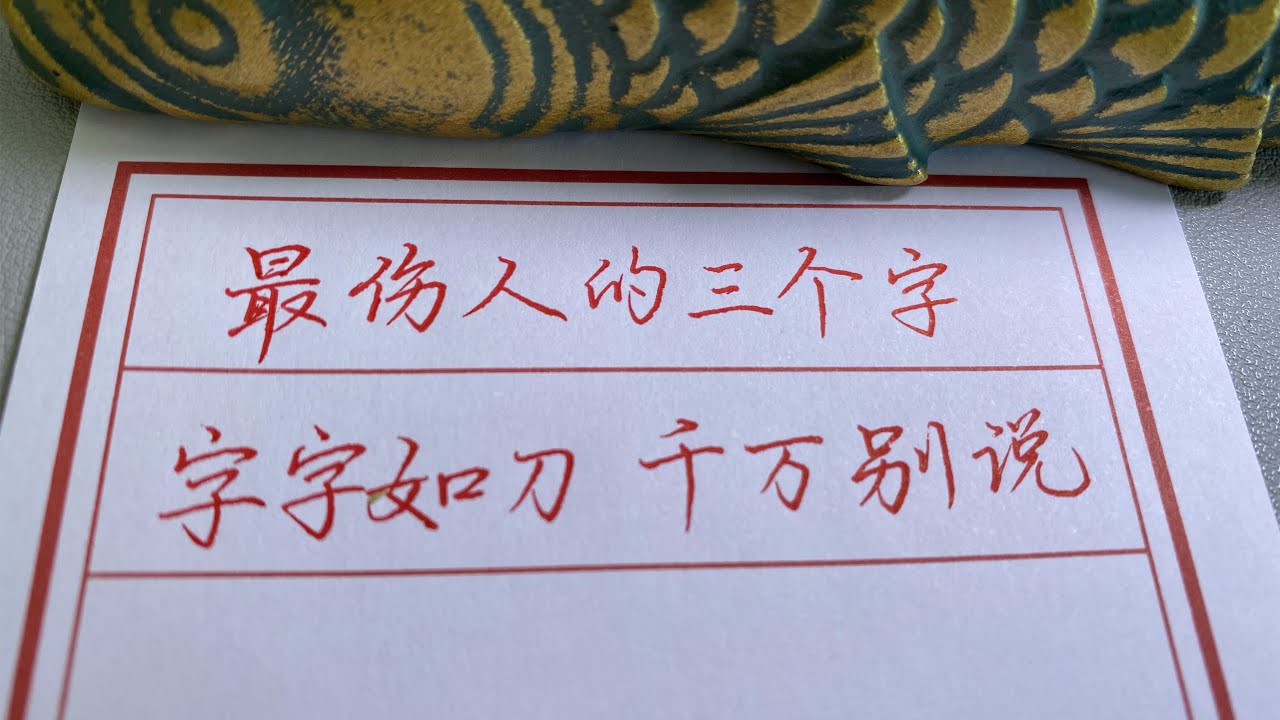 最伤人的三个字
字字如刀 千万别说